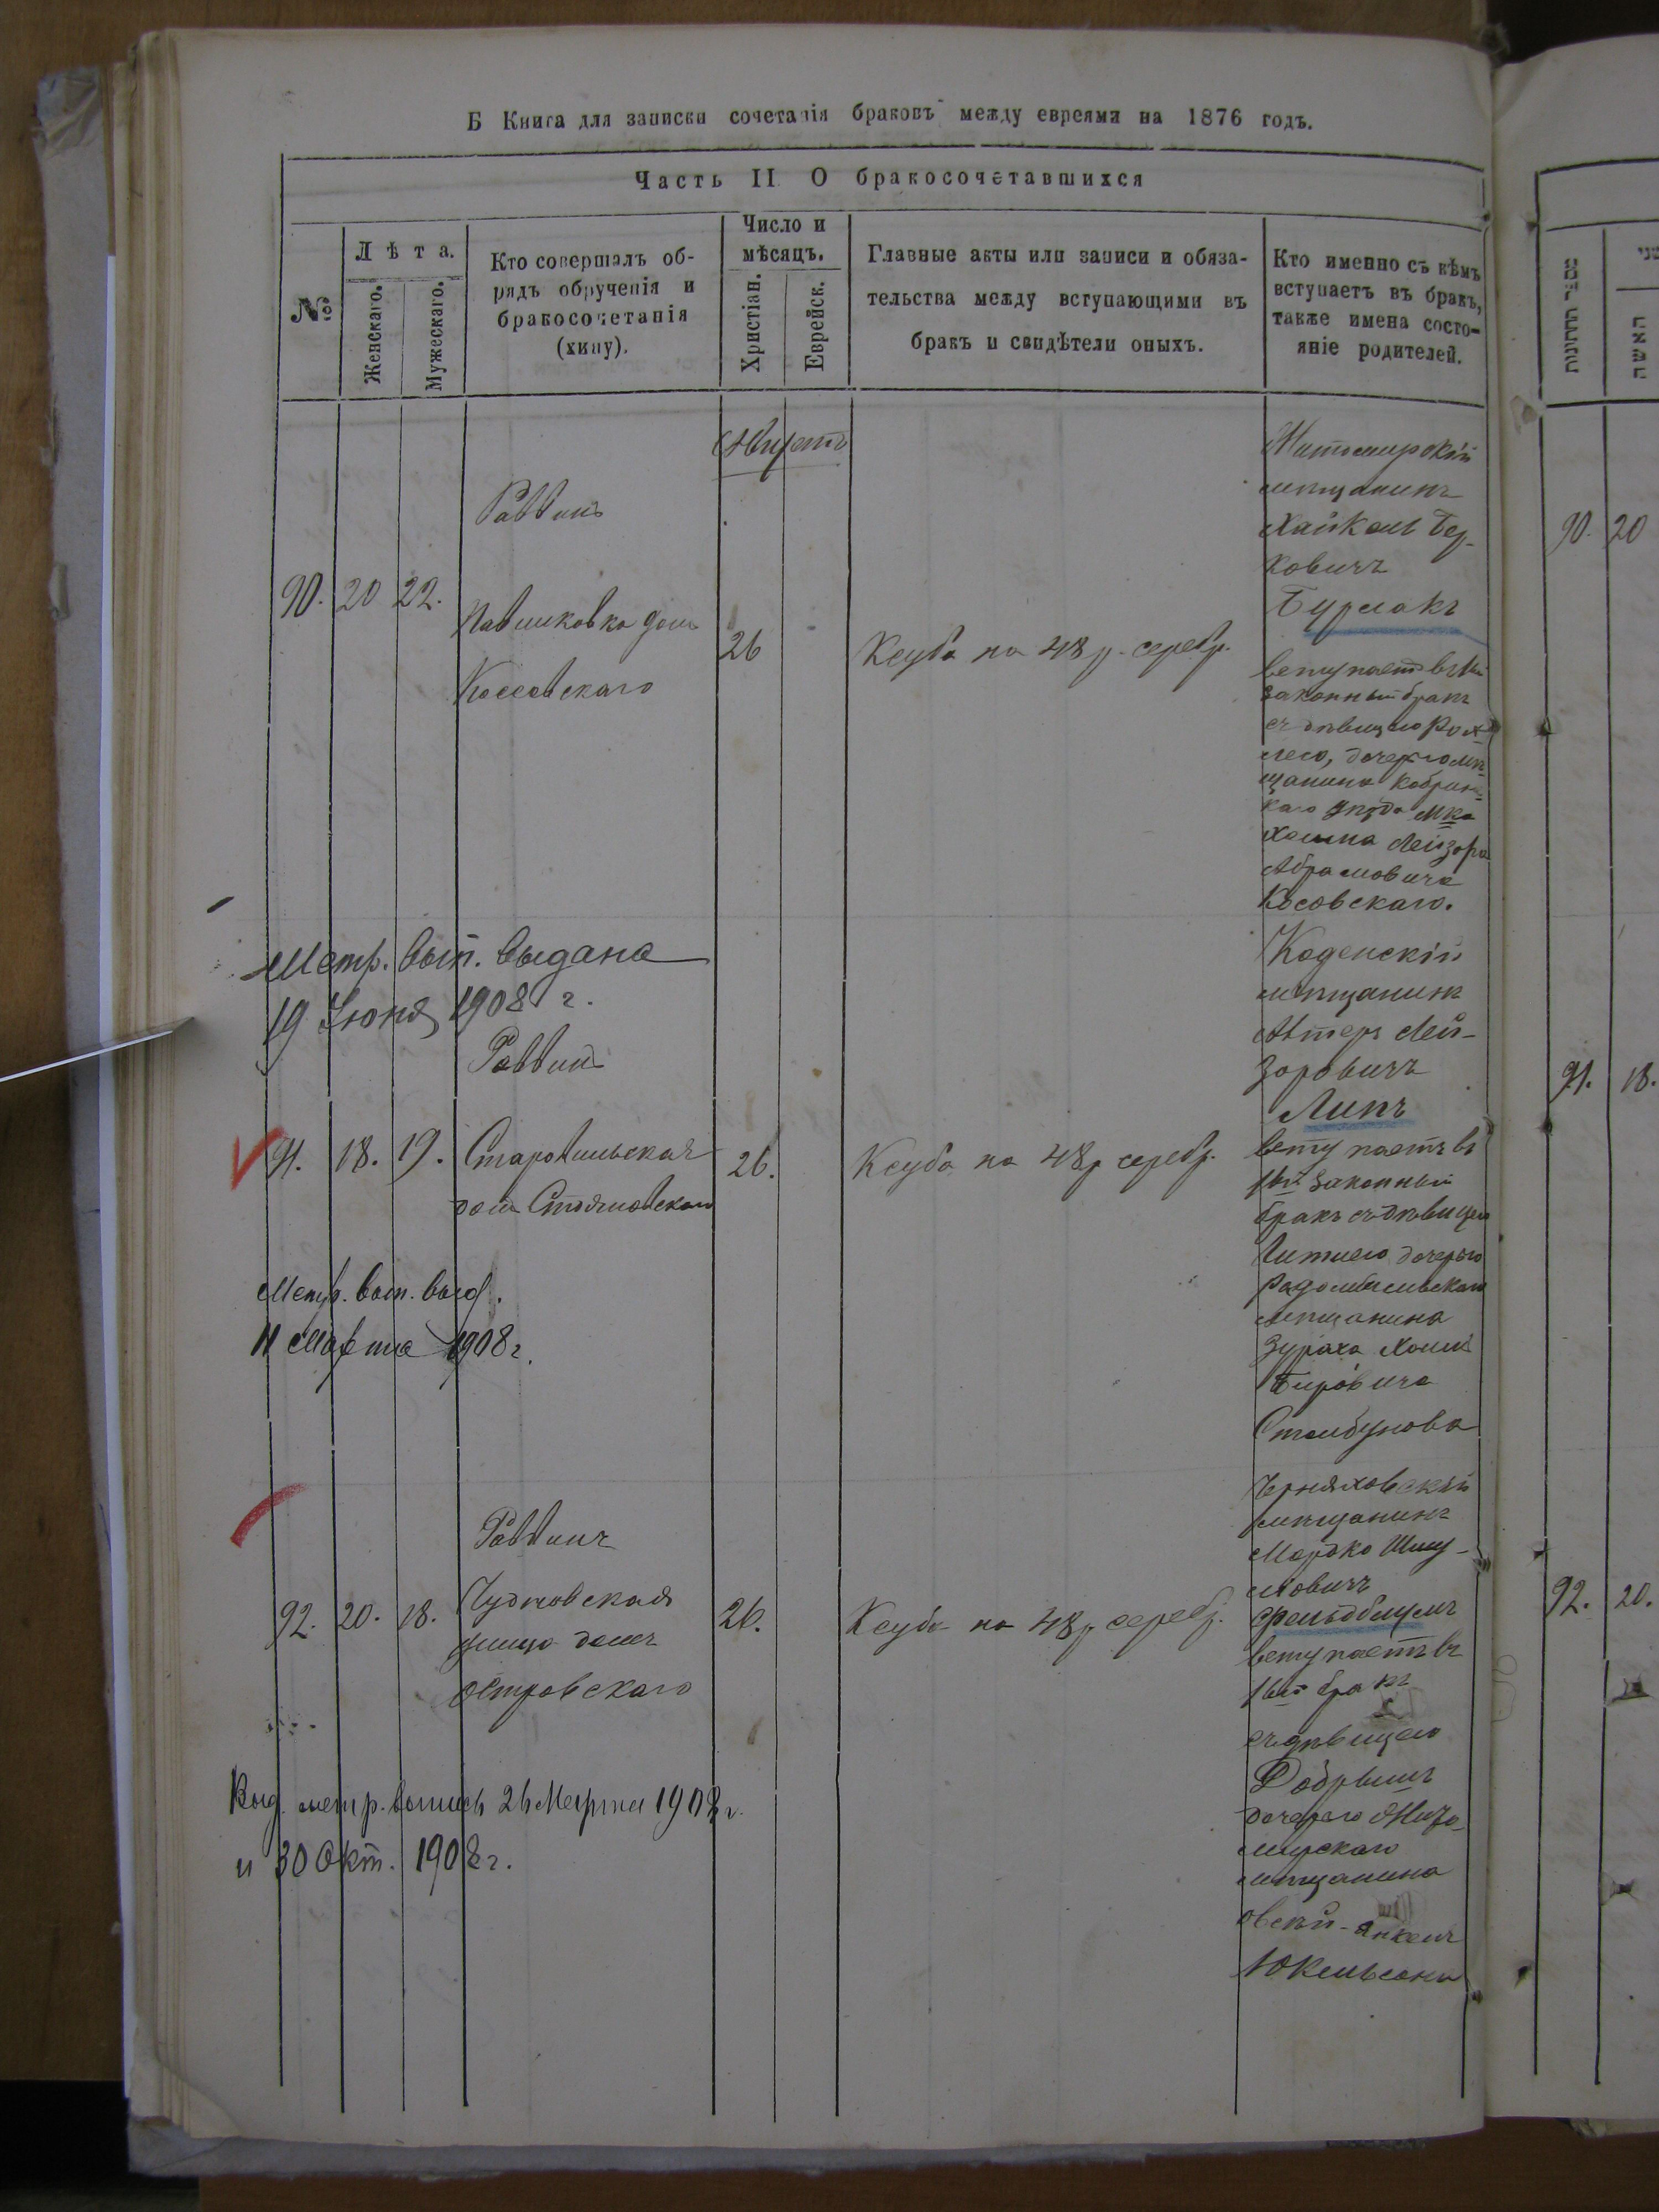 Б Книга для записки сочетанія браковъ между евреями на 1876 годъ.
Часть II О бракосочетавшихся
№
Лѣта.
Женскаго.
Мужескаго.
Кто совершалъ об-
рядъ обрученія и
бракосочетанія
(хипу).
Число и
мѣсяцъ.
Христіан.
Еврейск.
Главные акты или записи и обяза-
тельства между вступающими въ
бракъ и свидѣтели оныхъ.
Кто именно съ кѣмъ
вступаетъ въ бракъ,
также имена состо-
яніе родителей.
מספר החתונות
האשה
90. 20 22.
Раввинъ
Павликовка домъ
Коссовскаго
26
Ксуба на 48 р. серебр.
Житомирскій
мѣщанинъ
Хайкель Бер-
ковичъ
Бурлакъ
вступаетъ въ 1й
законный бракъ
съ дѣвицею Рох-
лею, дочерью мѣ-
щанина Кобрин-
каго уѣзда
Хаима Лейзора
Абрамовича
Косовскаго.
Метр. вып. выдана
19 Іюня 1908 г.
91. 18. 19.
Раввинъ
домъ
26.
Ксуба на 48 р серебр.
Коденскій
мѣщанинъ
Алтеръ Лей-
зоровичъ
Липъ
вступаетъ въ
1й законный
бракъ съ дѣвицею
дочерью
Радомысльскаго
мѣщанина
Хаимъ
Стамбунова
Метр. вып. выд.
11 Марта 1908 г.
92. 20. 18.
Раввинъ
Чудновская
улица домъ
Островскаго
26.
Ксуба на 48 р серебр.
Черняховскій
мѣщанинъ
Мордко Шму-
левичъ
Фельдблумъ
вступаетъ въ
1й бракъ
съ дѣвицею
Добрышъ
дочерью Жито-
мирскаго
мѣщанина
Овсѣй-Янкель
Юкельсона
Выд. метр. выпись 26 Марта 1908 г.
и 30 Окт. 1908 г.
90. 20
91. 18.
92. 20.